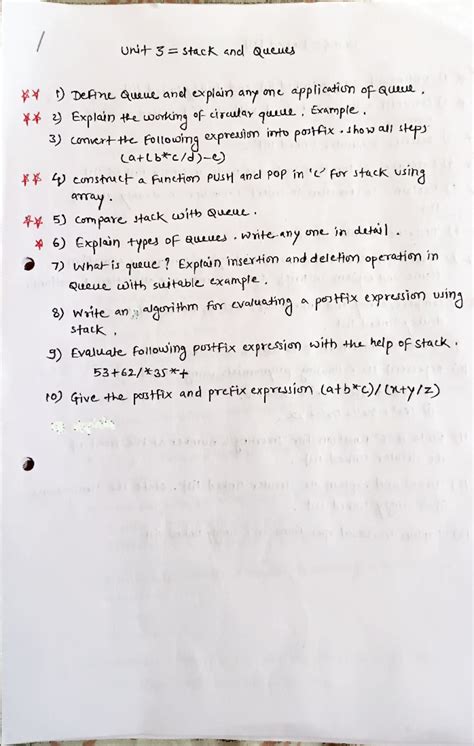 Unit 3 = Stack and Queues
** 1) Define Queue and explain any one application of Queue.
** 2) Explain the working of circular queue. Example.
3) convert the following expression into postfix. show all steps
(a+(b*c/d)-e)
** 4) construct a function PUSH and POP in 'c' for stack using
array.
** 5) compare stack with Queue.
* 6) Explain types of Queues. Write any one in detail.
7) What is queue? Explain insertion and deletion operation in
Queue with suitable example.
8) Write an algorithm for evaluating a postfix expression using
stack.
9) Evaluate following postfix expression with the help of stack.
53+62/*35*+
10) Give the postfix and prefix expression (a+b*c)/(x+y/z)